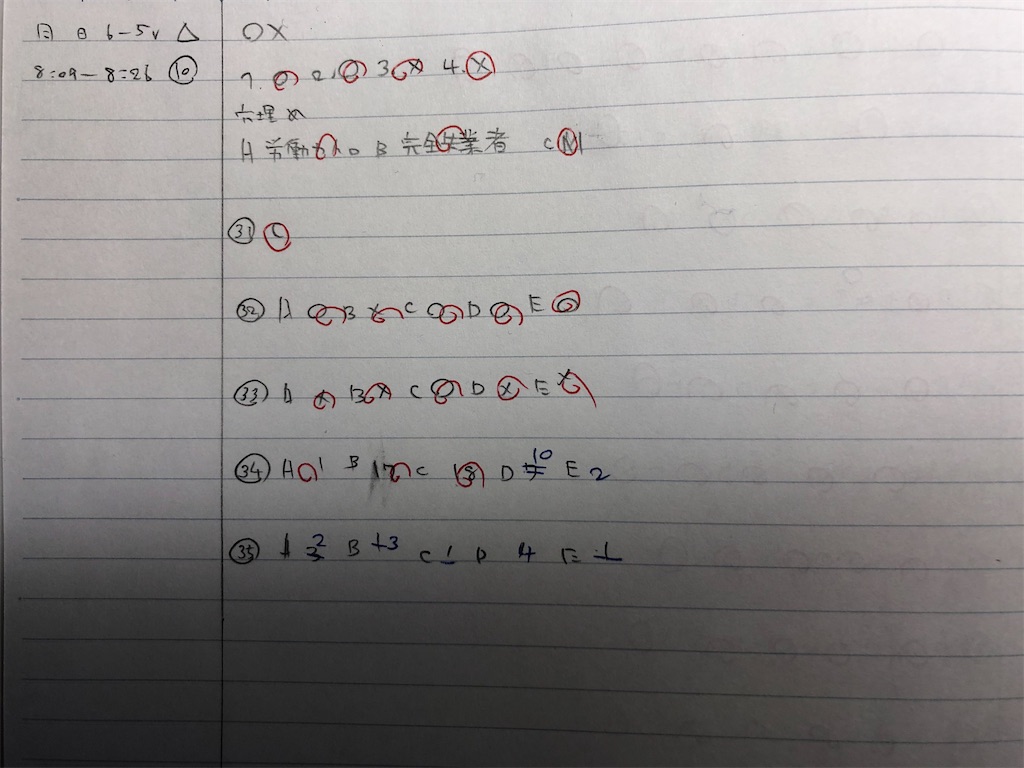 月 日 6-5v △
8:09-8:26 ⑩
OX
1. ○ 2. ○ 3. × 4. ×
穴埋め
A 労働力人口 B 完全失業者 C M
㉛ C
㉜ A ○ B × C ○ D ○ E ○
㉝ A × B × C ○ D × E ×
㉞ A 1 B 17 C 18 D 10 E 2
㉟ A 2 B 3 C 1 D 4 E